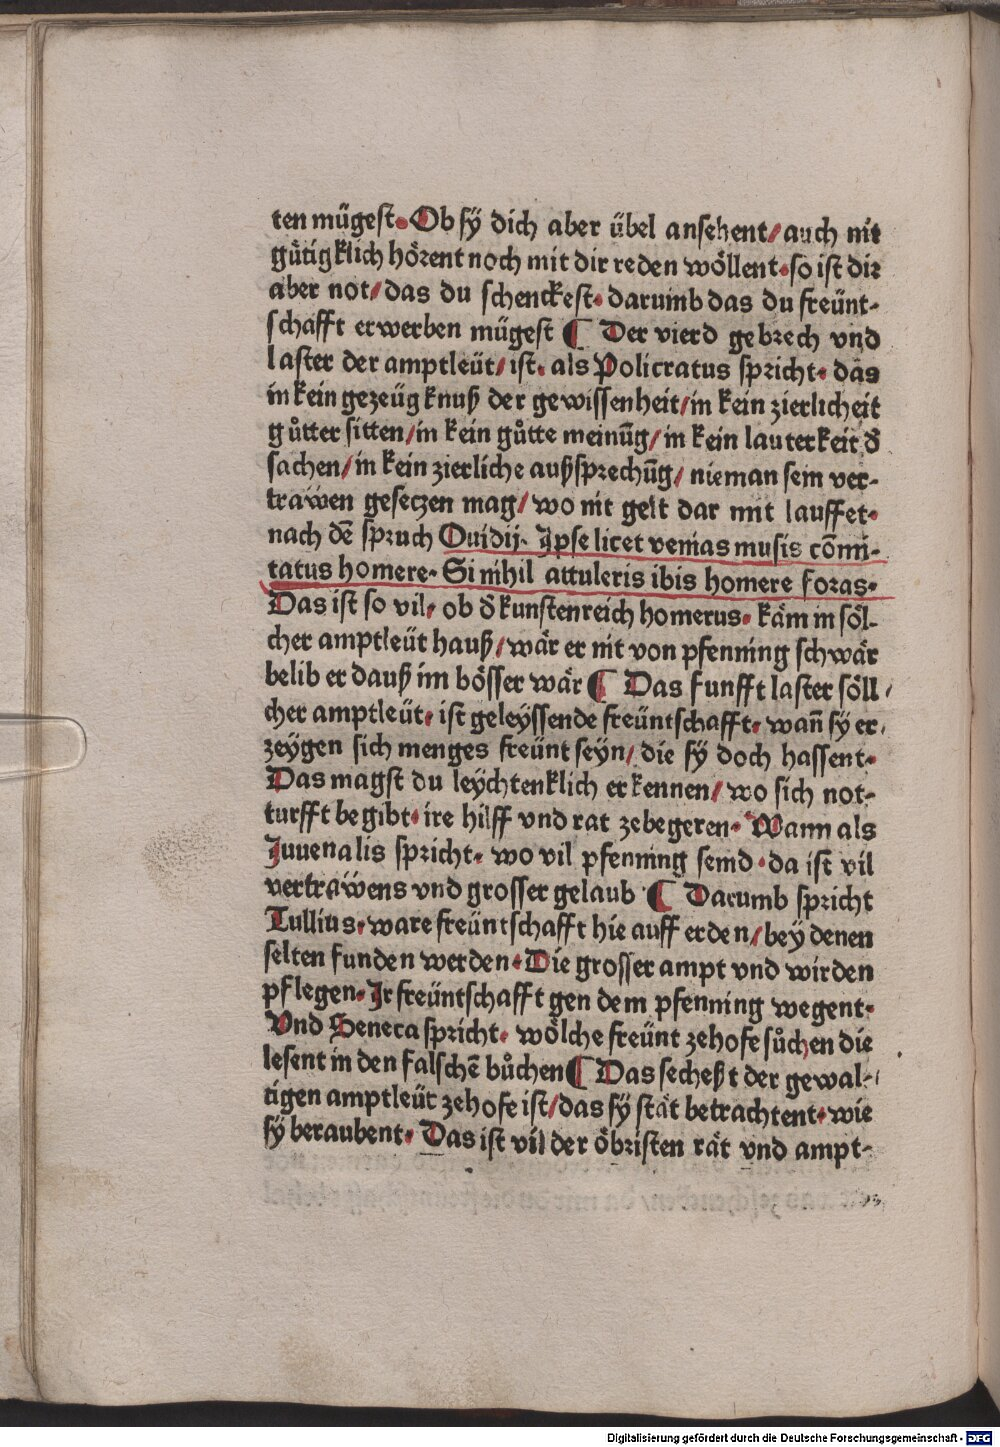 ten mügest. Ob sÿ dich aber übel ansehent/ auch nit
gůtigklich hörent noch mit dir reden wöllent. so ist dir
aber not/ das du schenckest. darumb das du freünt-
schafft erwerben mügest ¶ Der vierd gebrech vnd
laster der amptleüt/ ist. als Policratus spricht. das
in kein gezeügknuß der gewissenheit/ in kein zierlicheit
gůtter sitten/ in kein gůtte meinūg/ in kein lauterkeit đ
sachen/ in kein zierliche außsprechūg/ nieman sein ver-
träwen geseczen mag/ wo nit gelt dar mit lauffet.
nach dē spruch Ouidij. Ipse licet venias musis cōmi-
tatus homere. Si nihil attuleris ibis homere foras.
Das ist so vil/ ob đ kunstenreich homerus. käm in söl-
cher amptleüt hauß/ wär er nit von pfenning schwär
belib er dauß im bösser wär ¶ Das funfft laster söll-
cher amptleüt. ist geleÿssende freüntschafft. wañ sÿ er-
zeÿgen sich menges freünt seÿn/ die sÿ doch hassent.
Das magst du leÿchtenklich erkennen/ wo sich not-
turfft begibt. ire hilff vnd rat zebegeren. Wann als
Juuenalis spricht. wo vil pfenning seind. da ist vil
verträwens vnd grosser gelaub ¶ Darumb spricht
Tullius. ware freüntschafft hie auff erden/ beÿ denen
selten funden werden. Die grosser ampt vnd wirden
pflegen. Ir freüntschafft gen dem pfenning wegent.
Vnd Seneca spricht. wölche freünt zehofe sůchen die
lesent in den falschē bůchen ¶ Das secheßt der gewal-
tigen amptleüt zehofe ist/ das sÿ stät betrachtent. wie
sÿ beraubent. Das ist vil der öbristen rät vnd ampt-
Digitalisierung gefördert durch die Deutsche Forschungsgemeinschaft - DFG